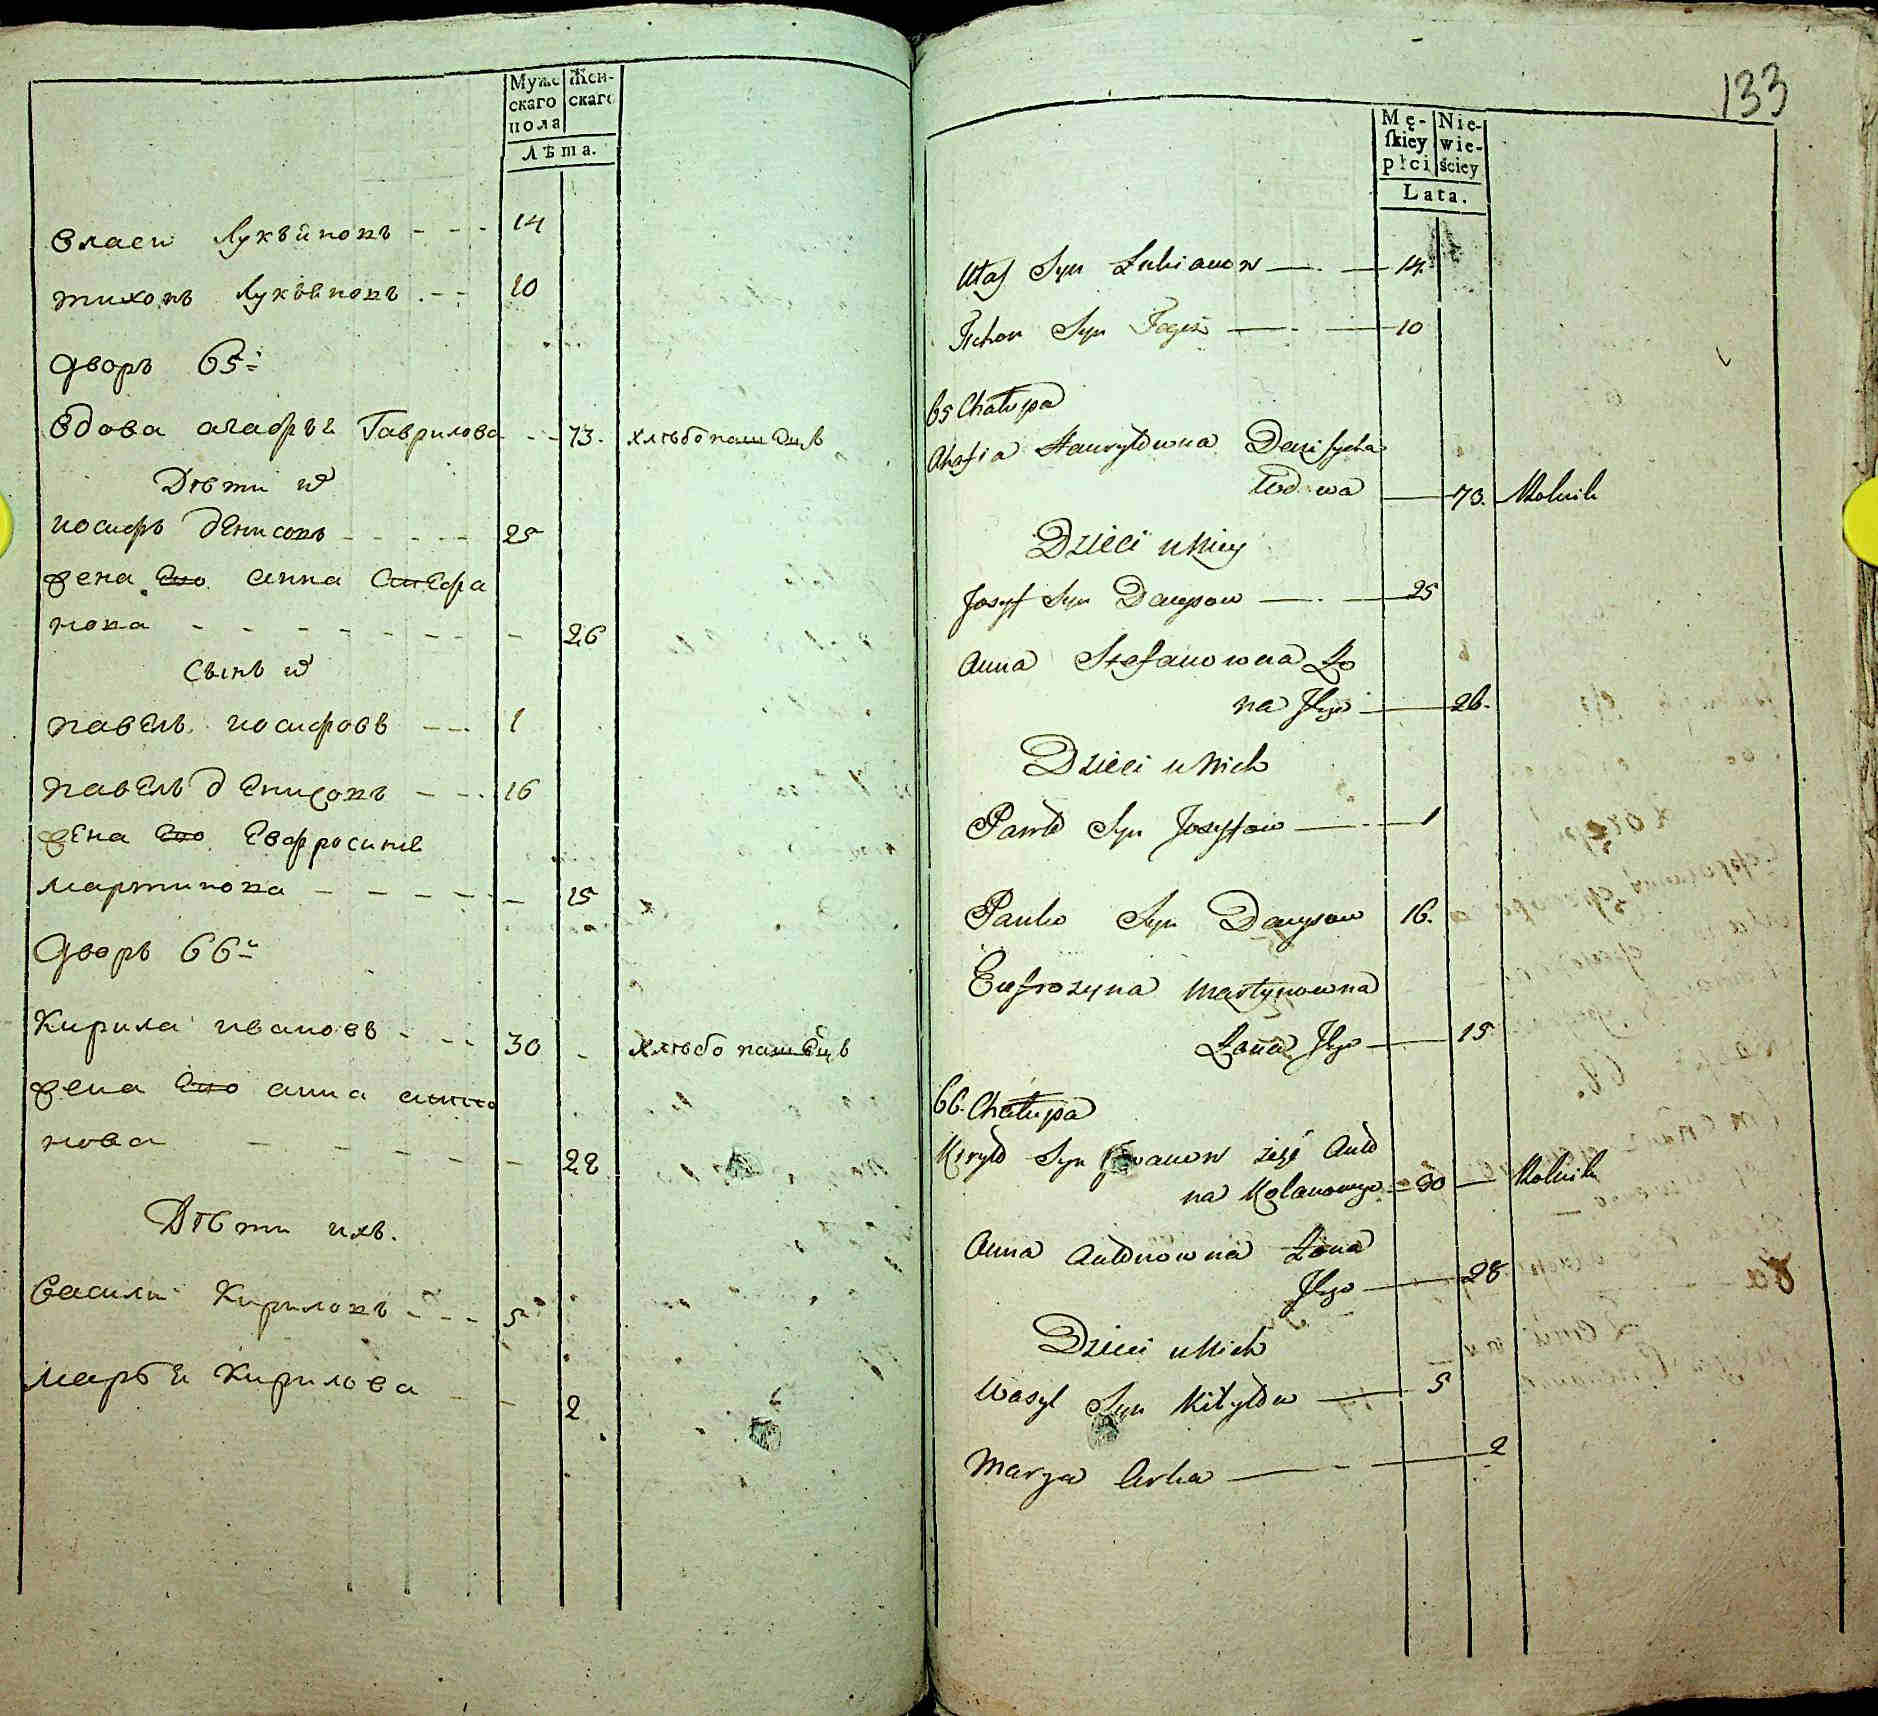 Мужс
скаго
пола
Жен-
скаго
Лѣта.
Власи Лукъяновъ - - - 14
тихонъ Лукъяновъ - - - 10
дворъ 65й
вдова агафья Гаврилова - - 73. хлѣбопашецъ
Дѣти
иосифъ денисовъ - - - - - 25
жена его анна Стефа
нова - - - - - - - - 26
Сынъ
павелъ иосифовъ - - - 1
павелъ денисовъ - - - 16
жена его Евфросинья
мартинова - - - - - 15
дворъ 66й
Кирила ивановъ - - - 30 - хлѣбопашецъ
жена его анна анто
нова - - - - - 28
Дѣти ихъ.
Василий Кириловъ - - - 5
марья Кирилова - - 2
133
Mę-
skiey
płci
Nie-
wie-
ściey
Lata.
Własy Syn Łukianow — 14.
Tichon Syn Tegoż — 10
65 Chałupa
Ahafia Hawryłowna Denisycha
Wdowa — 73. Rolnik
Dzieci u Niey
Josyf Syn Danysow — 25
Anna Stefanowna Żo
na Jłgo — 26.
Dzieci u Nich
Paweł Syn Josyfow — 1
Pauło Syn Danysow 16.
Eufrozyna Martynowna
Żona Jłgo — 15
66. Chałupa
Kiryło Syn Iwanow
30 — Rolnik
Anna Antonowna Żona
Jłgo — 28
Dzieci u Nich
Wasyl Syn Kiryłow — 5
Marya Corka — 2